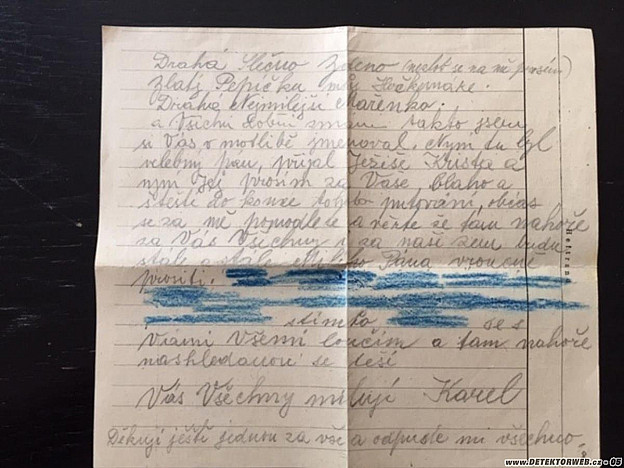 Drahá Slečno Zdeno (nezlob se na mě prosím)
Zlatý Pepíčku můj Točkpnake.
Drahá Nejmilejší Mařenko.
a Všichni dobří známí takto jsem
si Vás v modlitbě jmenoval. Nyní tu byl
velebný pan, přijal Ježíše Krista a
nyní Jej prosím za Vaše blaho a
štěstí do konce tohoto putování, občas
se za mě pomodlete a věřte že tam nahoře
za Vás Všechny i za naši zem budu
stále a stále Milého Pána vroucně
prositi.
s tímto se s
Vámi Všemi loučím a tam nahoře
nashledanou se těší
Vás Všechny milují Karel
Děkuji ještě jednou za vše a odpusťte mi všechno.
www.DETEKTORWEB.cz - 05